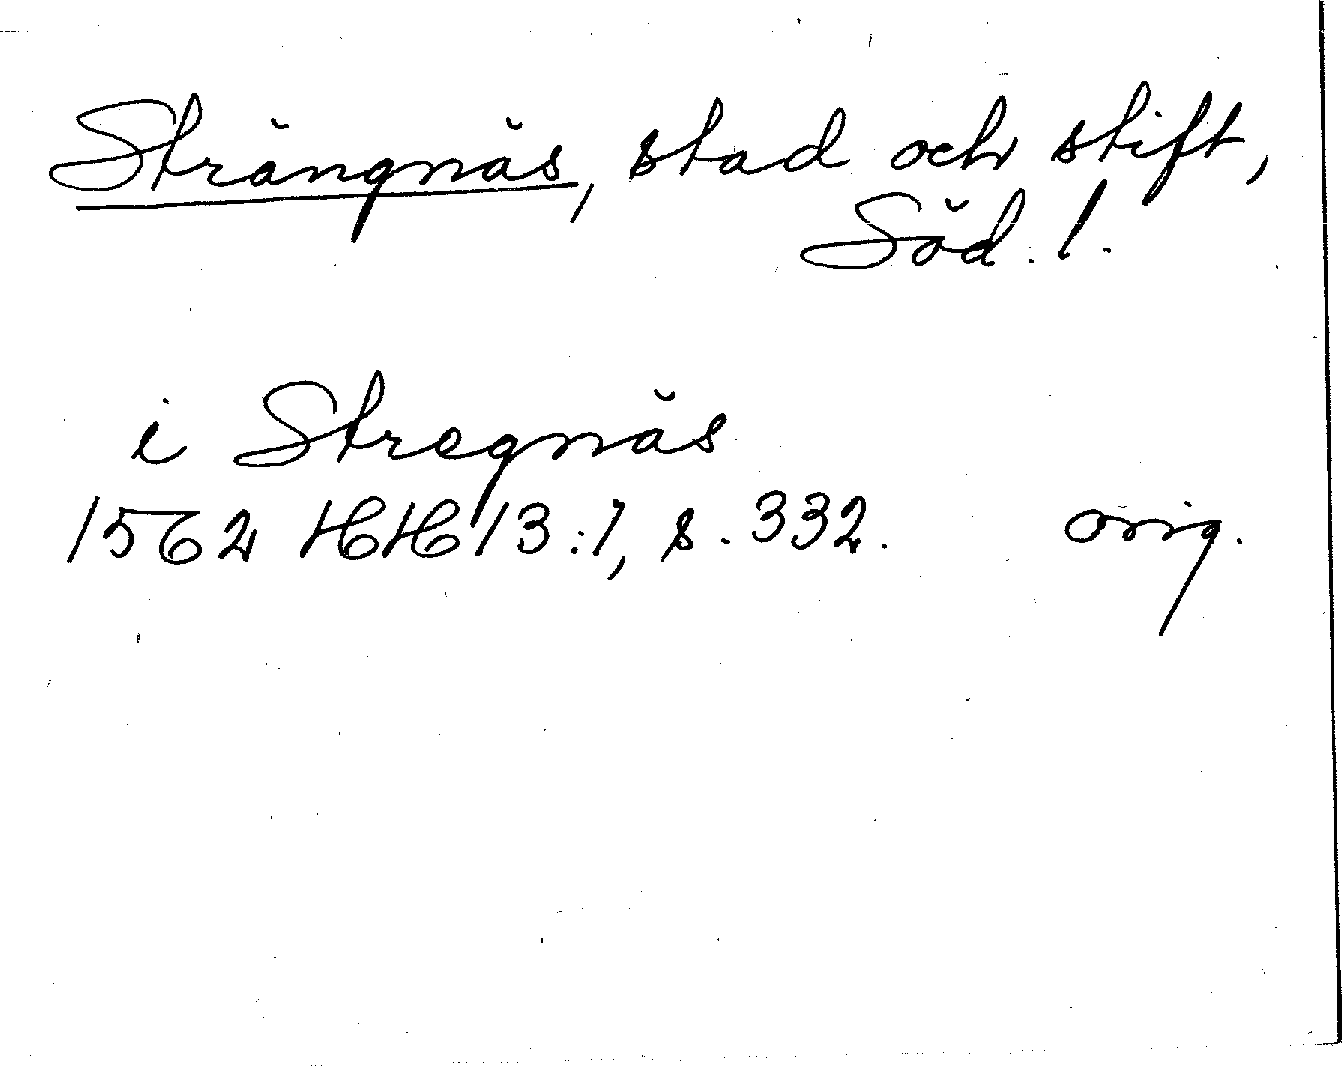 Strängnäs, stad och stift,
Söd. l.
i Stregnäs
1562 HH 13:1, s. 332. orig.